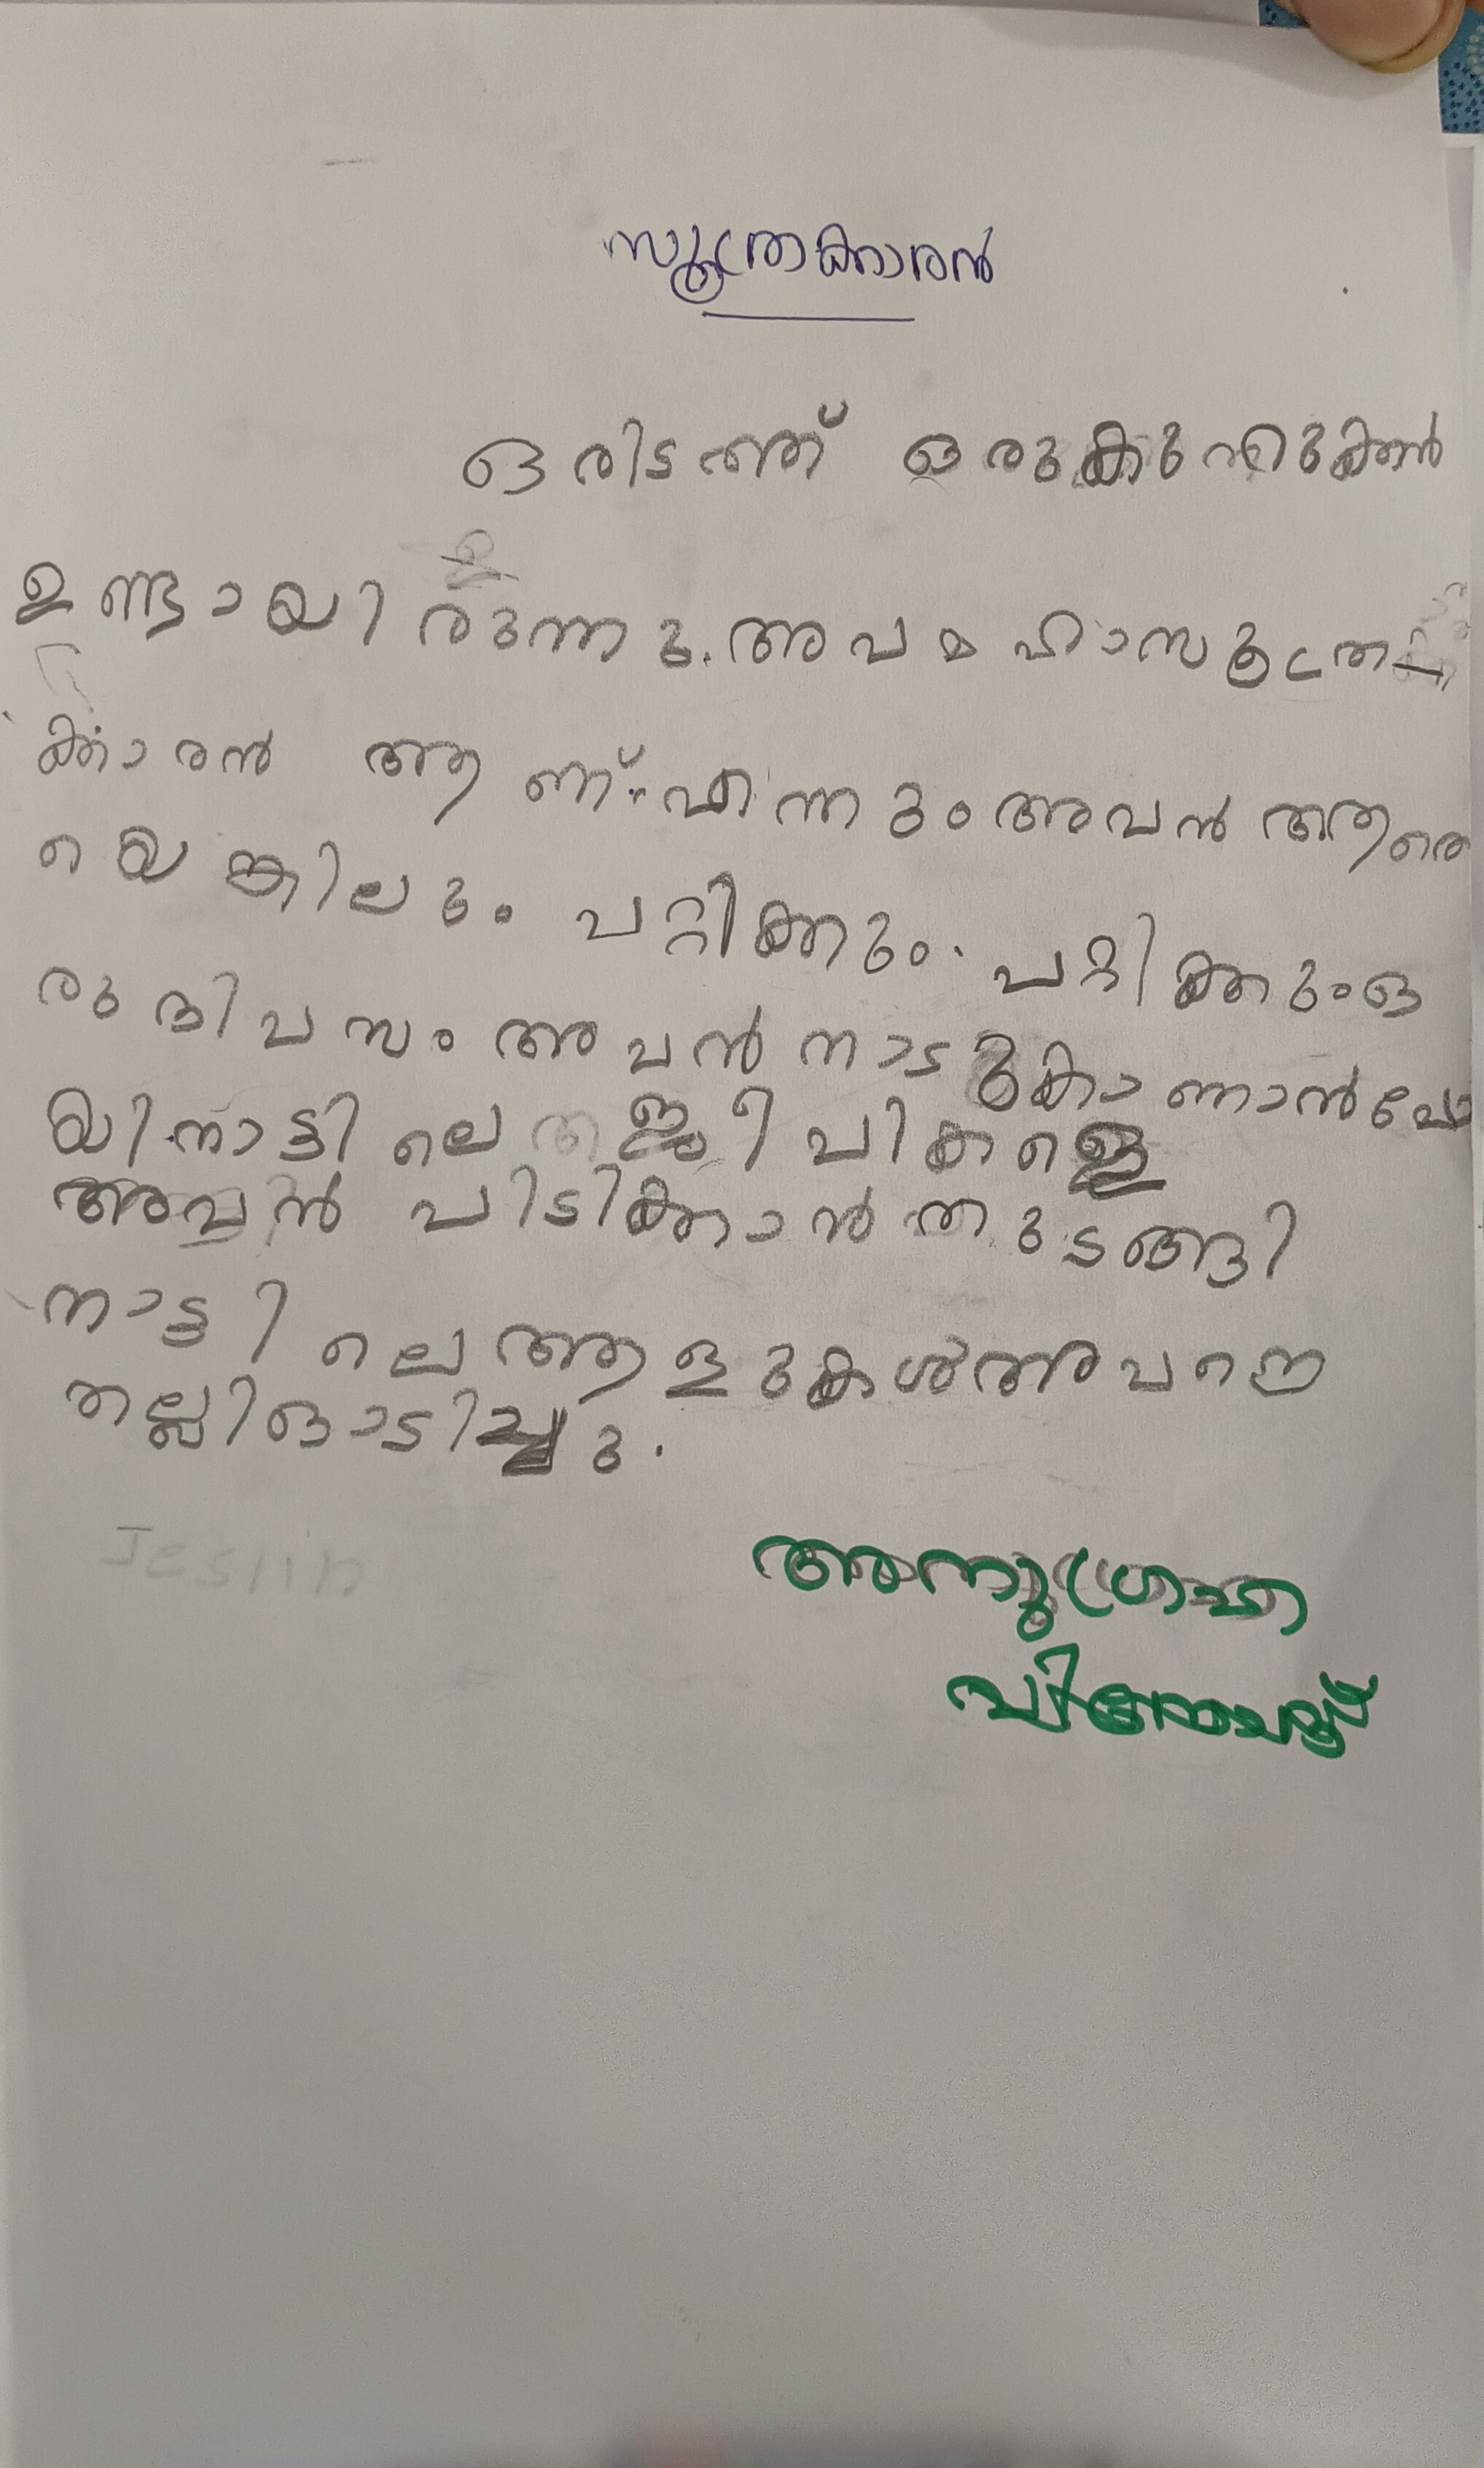 സൂത്രക്കാരൻ
ഒരിടത്ത് ഒരുകുറുക്കൻ
ഉണ്ടായിരുന്നു. അവ മഹാസൂത്ര
ക്കാരൻ ആണ്. എന്നും അവൻ ആരെ
യെങ്കിലും പറ്റിക്കും. പറ്റിക്കും ഒ
രു ദിവസം അവൻ നാടുകാണാൻപോ
യി നാട്ടിലെ ജീവികളെ
അവൻ പിടിക്കാൻ തുടങ്ങി
നാട്ടിലെ ആളുകൾ അവനെ
തല്ലിഓടിച്ചു.
Jeslin
അനുഗ്രഹ